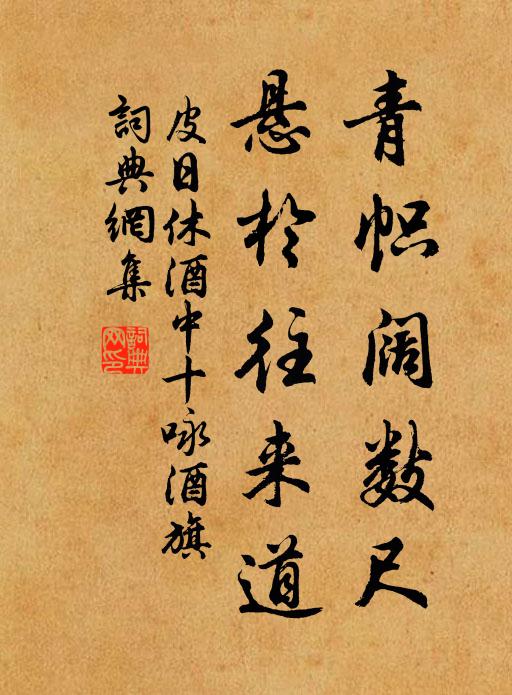 青帜阔数尺
悬於往来道
皮日休酒中十咏酒旗
詞典網集
詞典網印